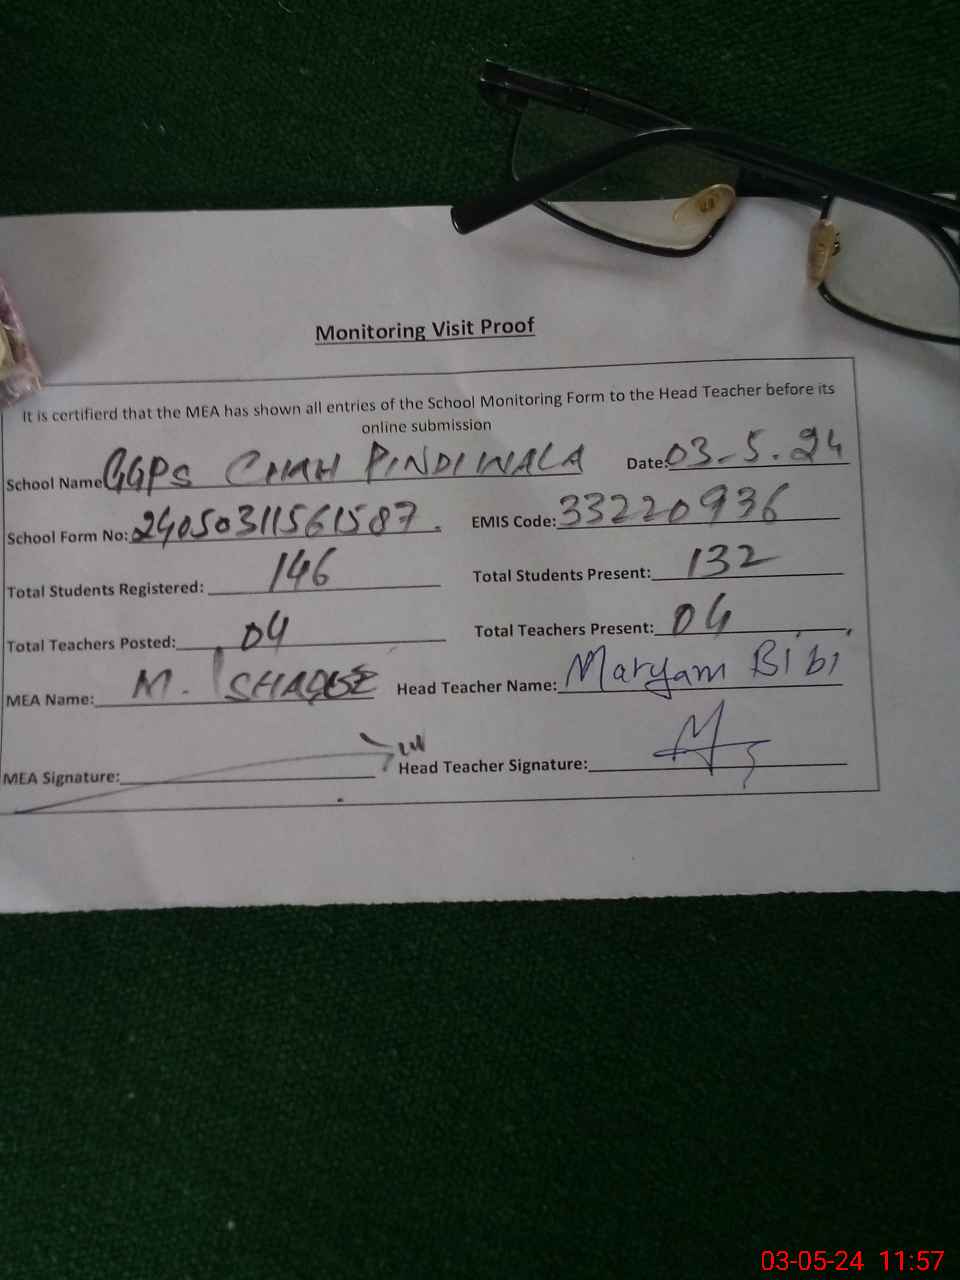 Monitoring Visit Proof
It is certifierd that the MEA has shown all entries of the School Monitoring Form to the Head Teacher before its
online submission
School Name GGPS CHAH PINDI WALA Date: 03-5.24
School Form No: 24050311561587. EMIS Code: 33220936
Total Students Registered: 146 Total Students Present: 132
Total Teachers Posted: 04 Total Teachers Present: 04
MEA Name: M. Head Teacher Name: Maryam Bibi
MEA Signature: Head Teacher Signature:
03-05-24 11:57